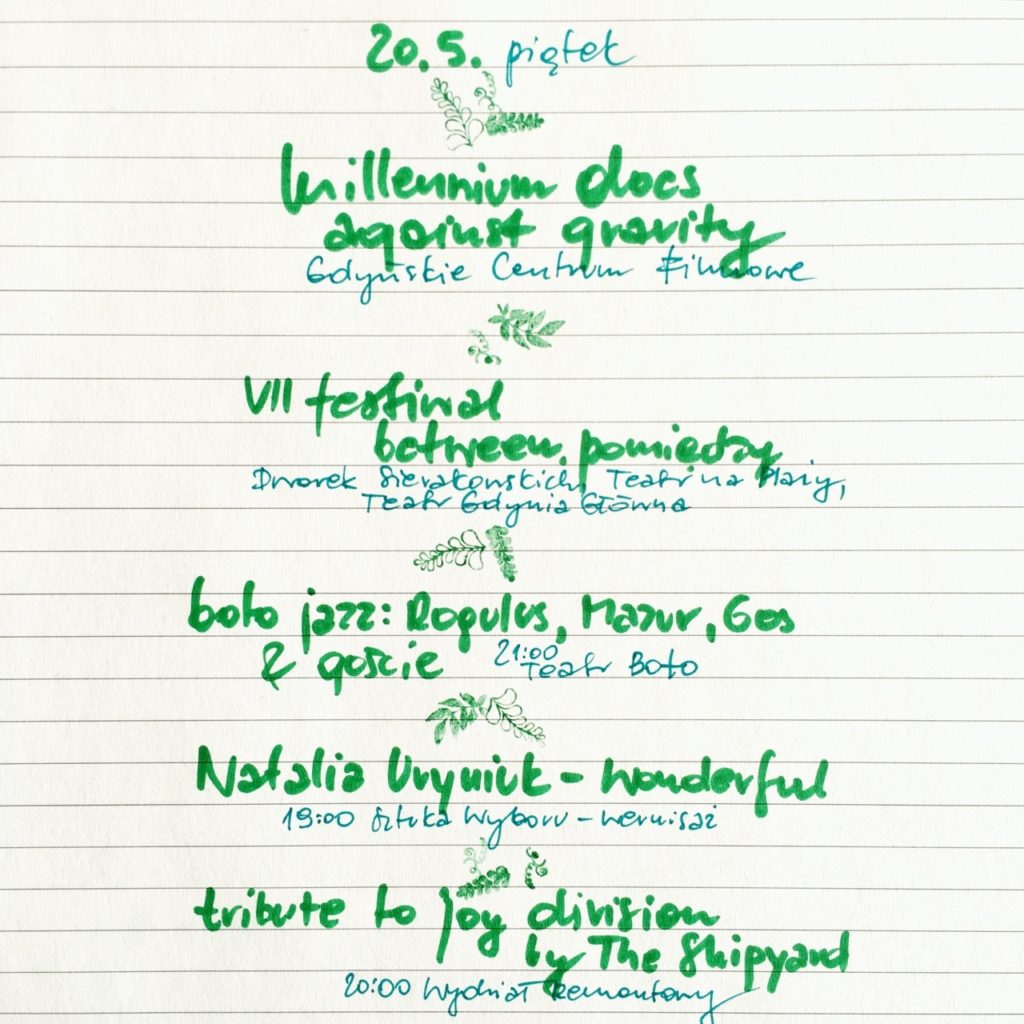 20.5. piątek
millennium docs
against gravity
Gdyńskie Centrum Filmowe
VII festiwal
between.pomiędzy
Dworek Sierakowskich, Teatr na Plaży,
Teatr Gdynia Główna
boto jazz: Rogulus, Mazur, Gos
& goście 21:00 Teatr Boto
Natalia Uryniuk - wonderful
19:00 Sztuka Wyboru - wernisaż
tribute to joy division
by The Shipyard
20:00 Wydział Remontowy